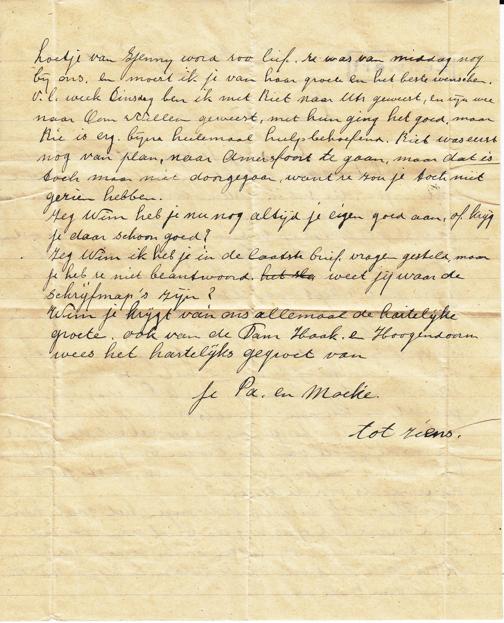 hoetje van Jenny word zoo lief. ze was van middag nog
bij ons. en moest ik je van haar groete en het beste wenschen.
v.l. week Dinsdag ben ik met Riet naar Utr geweest, en zijn we
naar Oom Willem geweest, met hun ging het goed, maar
Rie is erg. bijna heelemaal hulpbehoefend. Riet was eerst
nog van plan, naar Amersfoort te gaan, maar dat is
toch maar niet doorgegaan, want ze zou je toch niet
gezien hebben.
Zeg Wim heb je nu nog altijd je eigen goed aan, of krijg
je daar schoon goed?
Zeg Wim ik heb je in de laatste brief vragen gesteld, maar
je heb ze niet beantwoord, weet jij waar de
schrijfmap's zijn?
Wim je krijgt van ons allemaal de hartelijke
groete. ook van de Fam Haak. en Hoogendoorn
wees het hartelijks gegroet van
je Pa. en Moeke.
tot ziens.